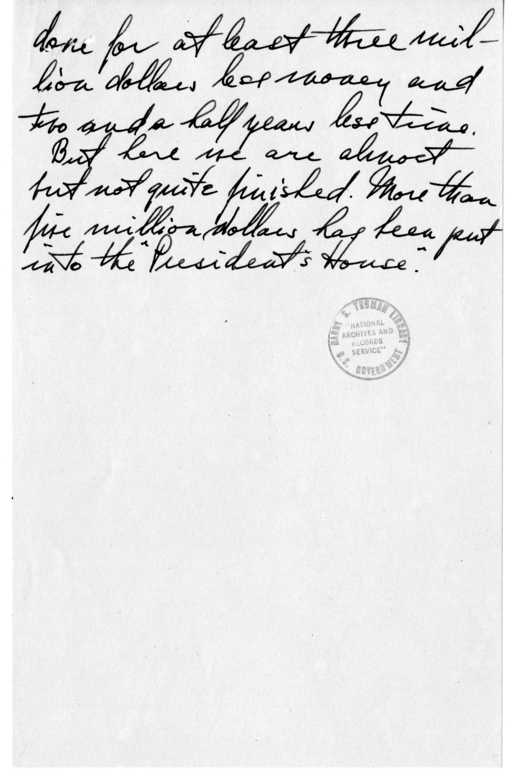 done for at least three mil-
lion dollars less money and
two and a half years less time.
But here we are almost
but not quite finished. More than
five million dollars has been put
into the "President's House".
HARRY S. TRUMAN LIBRARY
"NATIONAL
ARCHIVES AND
RECORDS
SERVICE"
U.S. GOVERNMENT